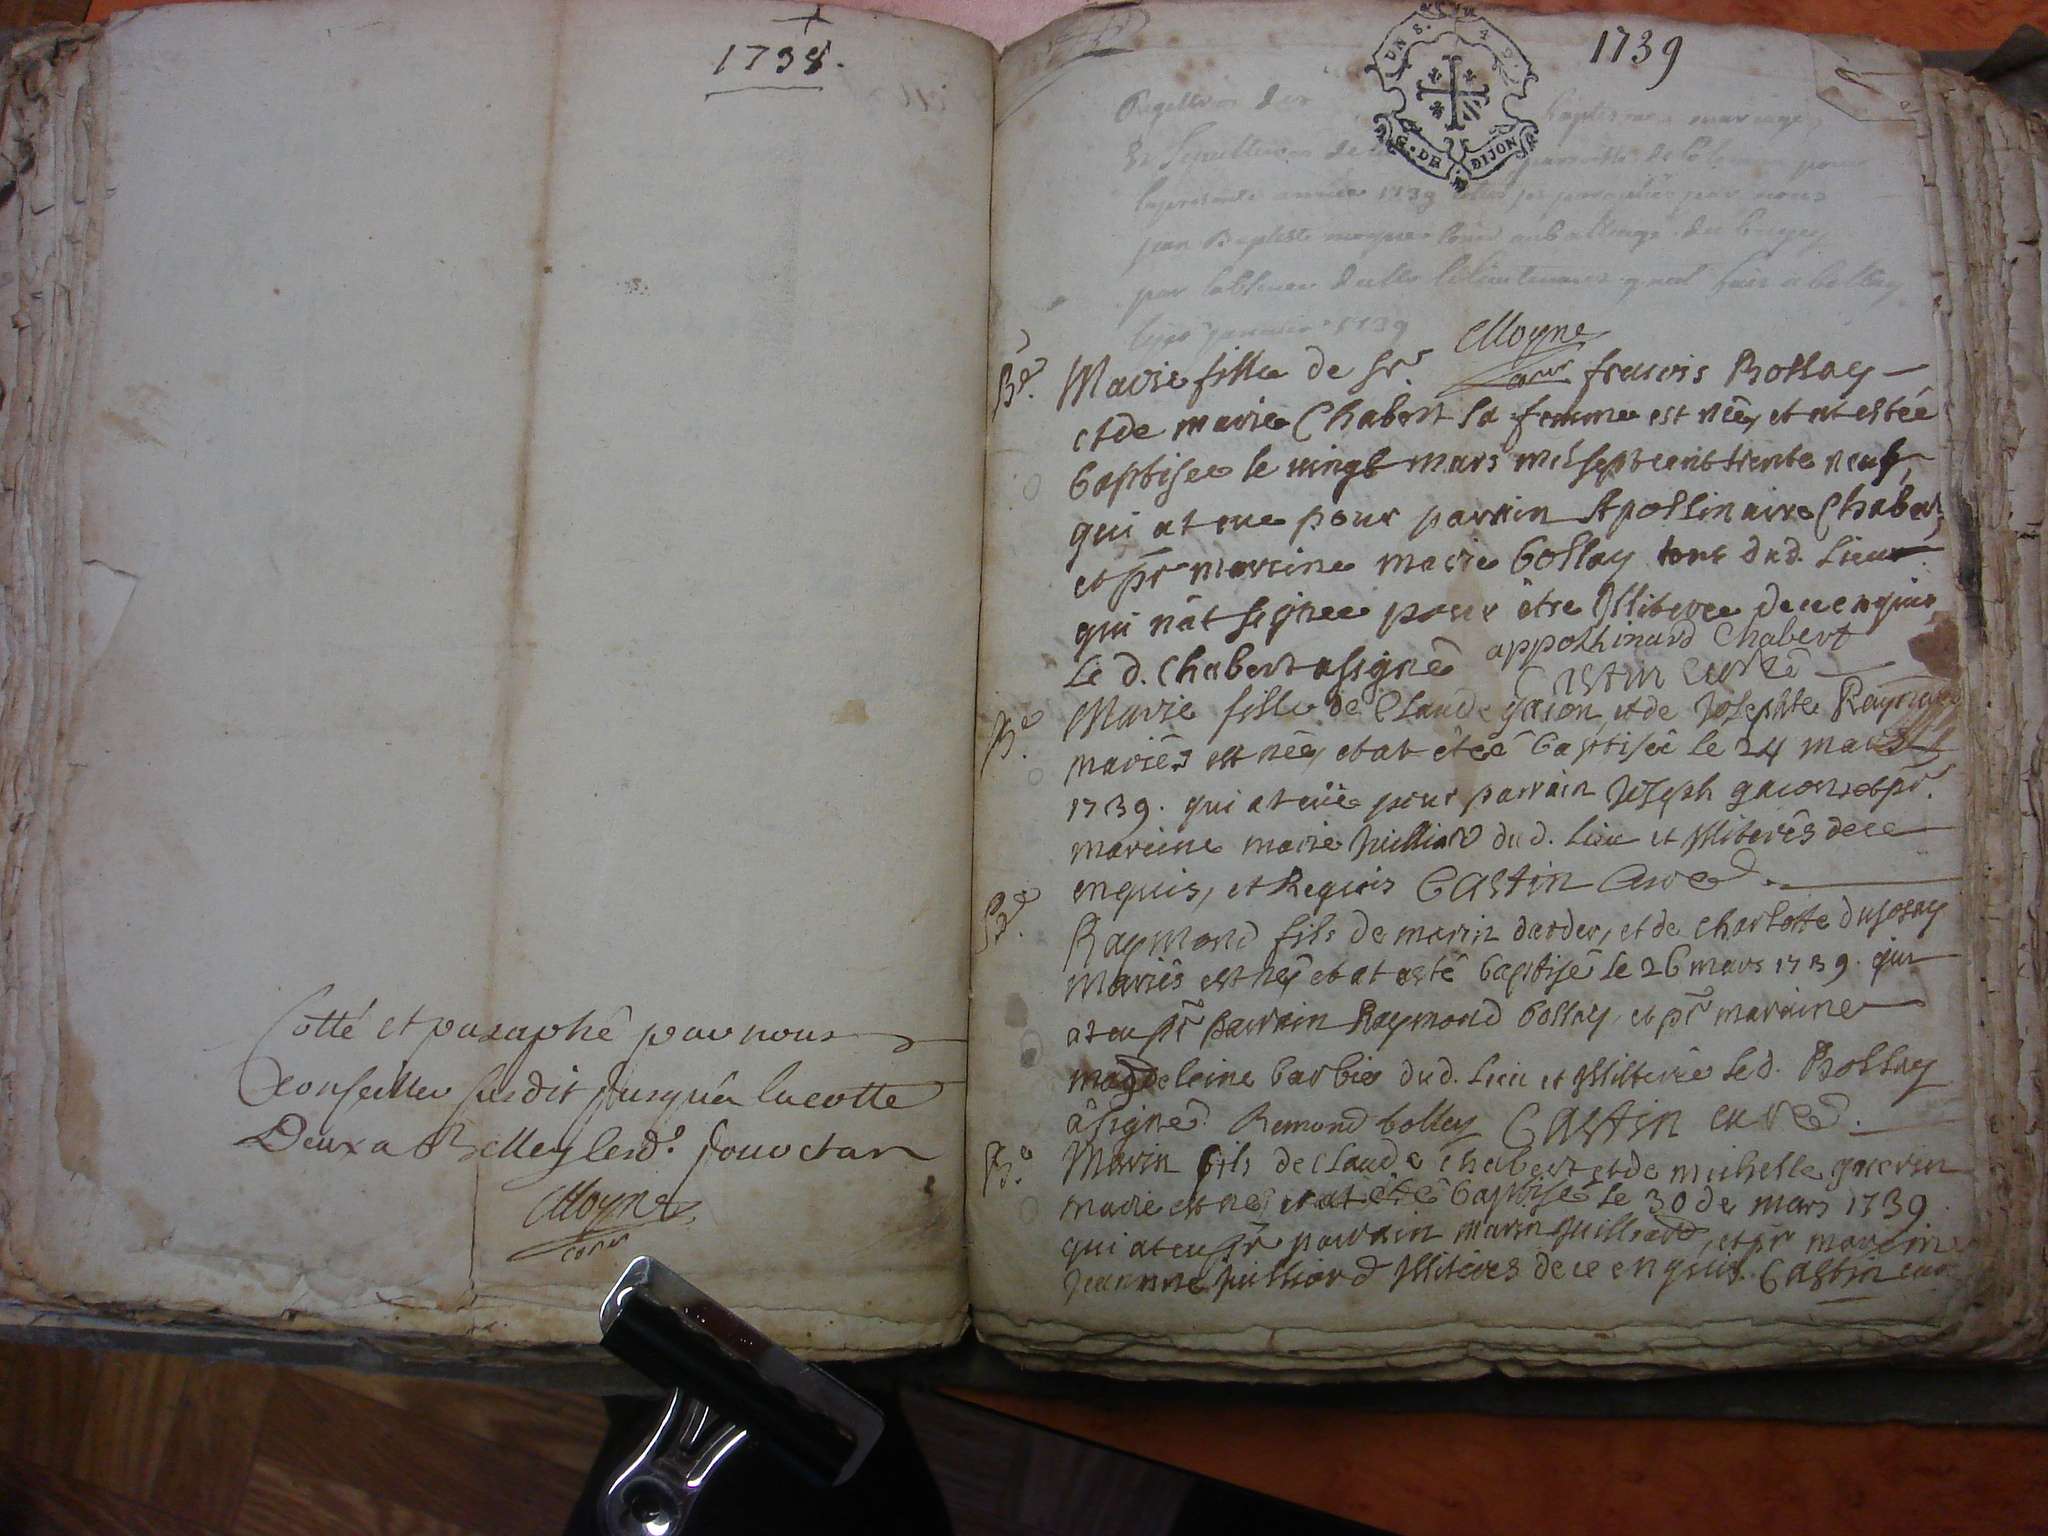 1738.
Cotté et paraphé par nous
Conseiller susdit jusqu'a la cotte
Deux a Belley lesd. jour et an
Moyne
1739
UN S. 4 D.
G. DE DIJON
Registres des baptesmes mariages
& Sepultures de la parroisse de pour
la presente année 1739 par nous
jean Baptiste moyne au balliage du bugey
par l'absence de Lieutenant gnal fait a belley
janvier 1739
Moyne
Be. Marie fille de Sr. francois Bollay
et de marie Chabert sa femme est née, et at estée
baptisee le vingt mars mil sept cent trente neuf,
qui at eue pour parrain Apollinaire Chabert,
et pr marrine marie bollay tous dud. Lieu
qui n'at signee pour être Illiteree de ce enquis
Le d. Chabert a signé appollinard Chabert
Castin curé
Be. Marie fille de Claude gacon, et de Josephte
mariés est née, et at étéé baptiséé le 24 mars
1739. qui at eüe pour parrain Joseph gacon, et pr.
mareine marie Juilliard dud. Lieu et Illiterés de ce
enquis, et Requis Castin Curé.
Be. Raymond fils de marin darder, et de Charlotte
Mariés est né, et at esté baptisé le 26 mars 1739. qui
at eu pr parrain Raymond bollay, et pr maraine
magdeleine barbie dud. Lieu et Illiterée Le d. Bollay
a signé. Remond bolley Castin curé.
Be. Marin fils de Claude Chabert et de michelle guerin
marie est né, et at été baptisé le 30 de mars 1739
qui at eu pr parrain marin Juilliard, et pr marein
Jeanne Juilliard Illiterés de ce enquis. Castin cur